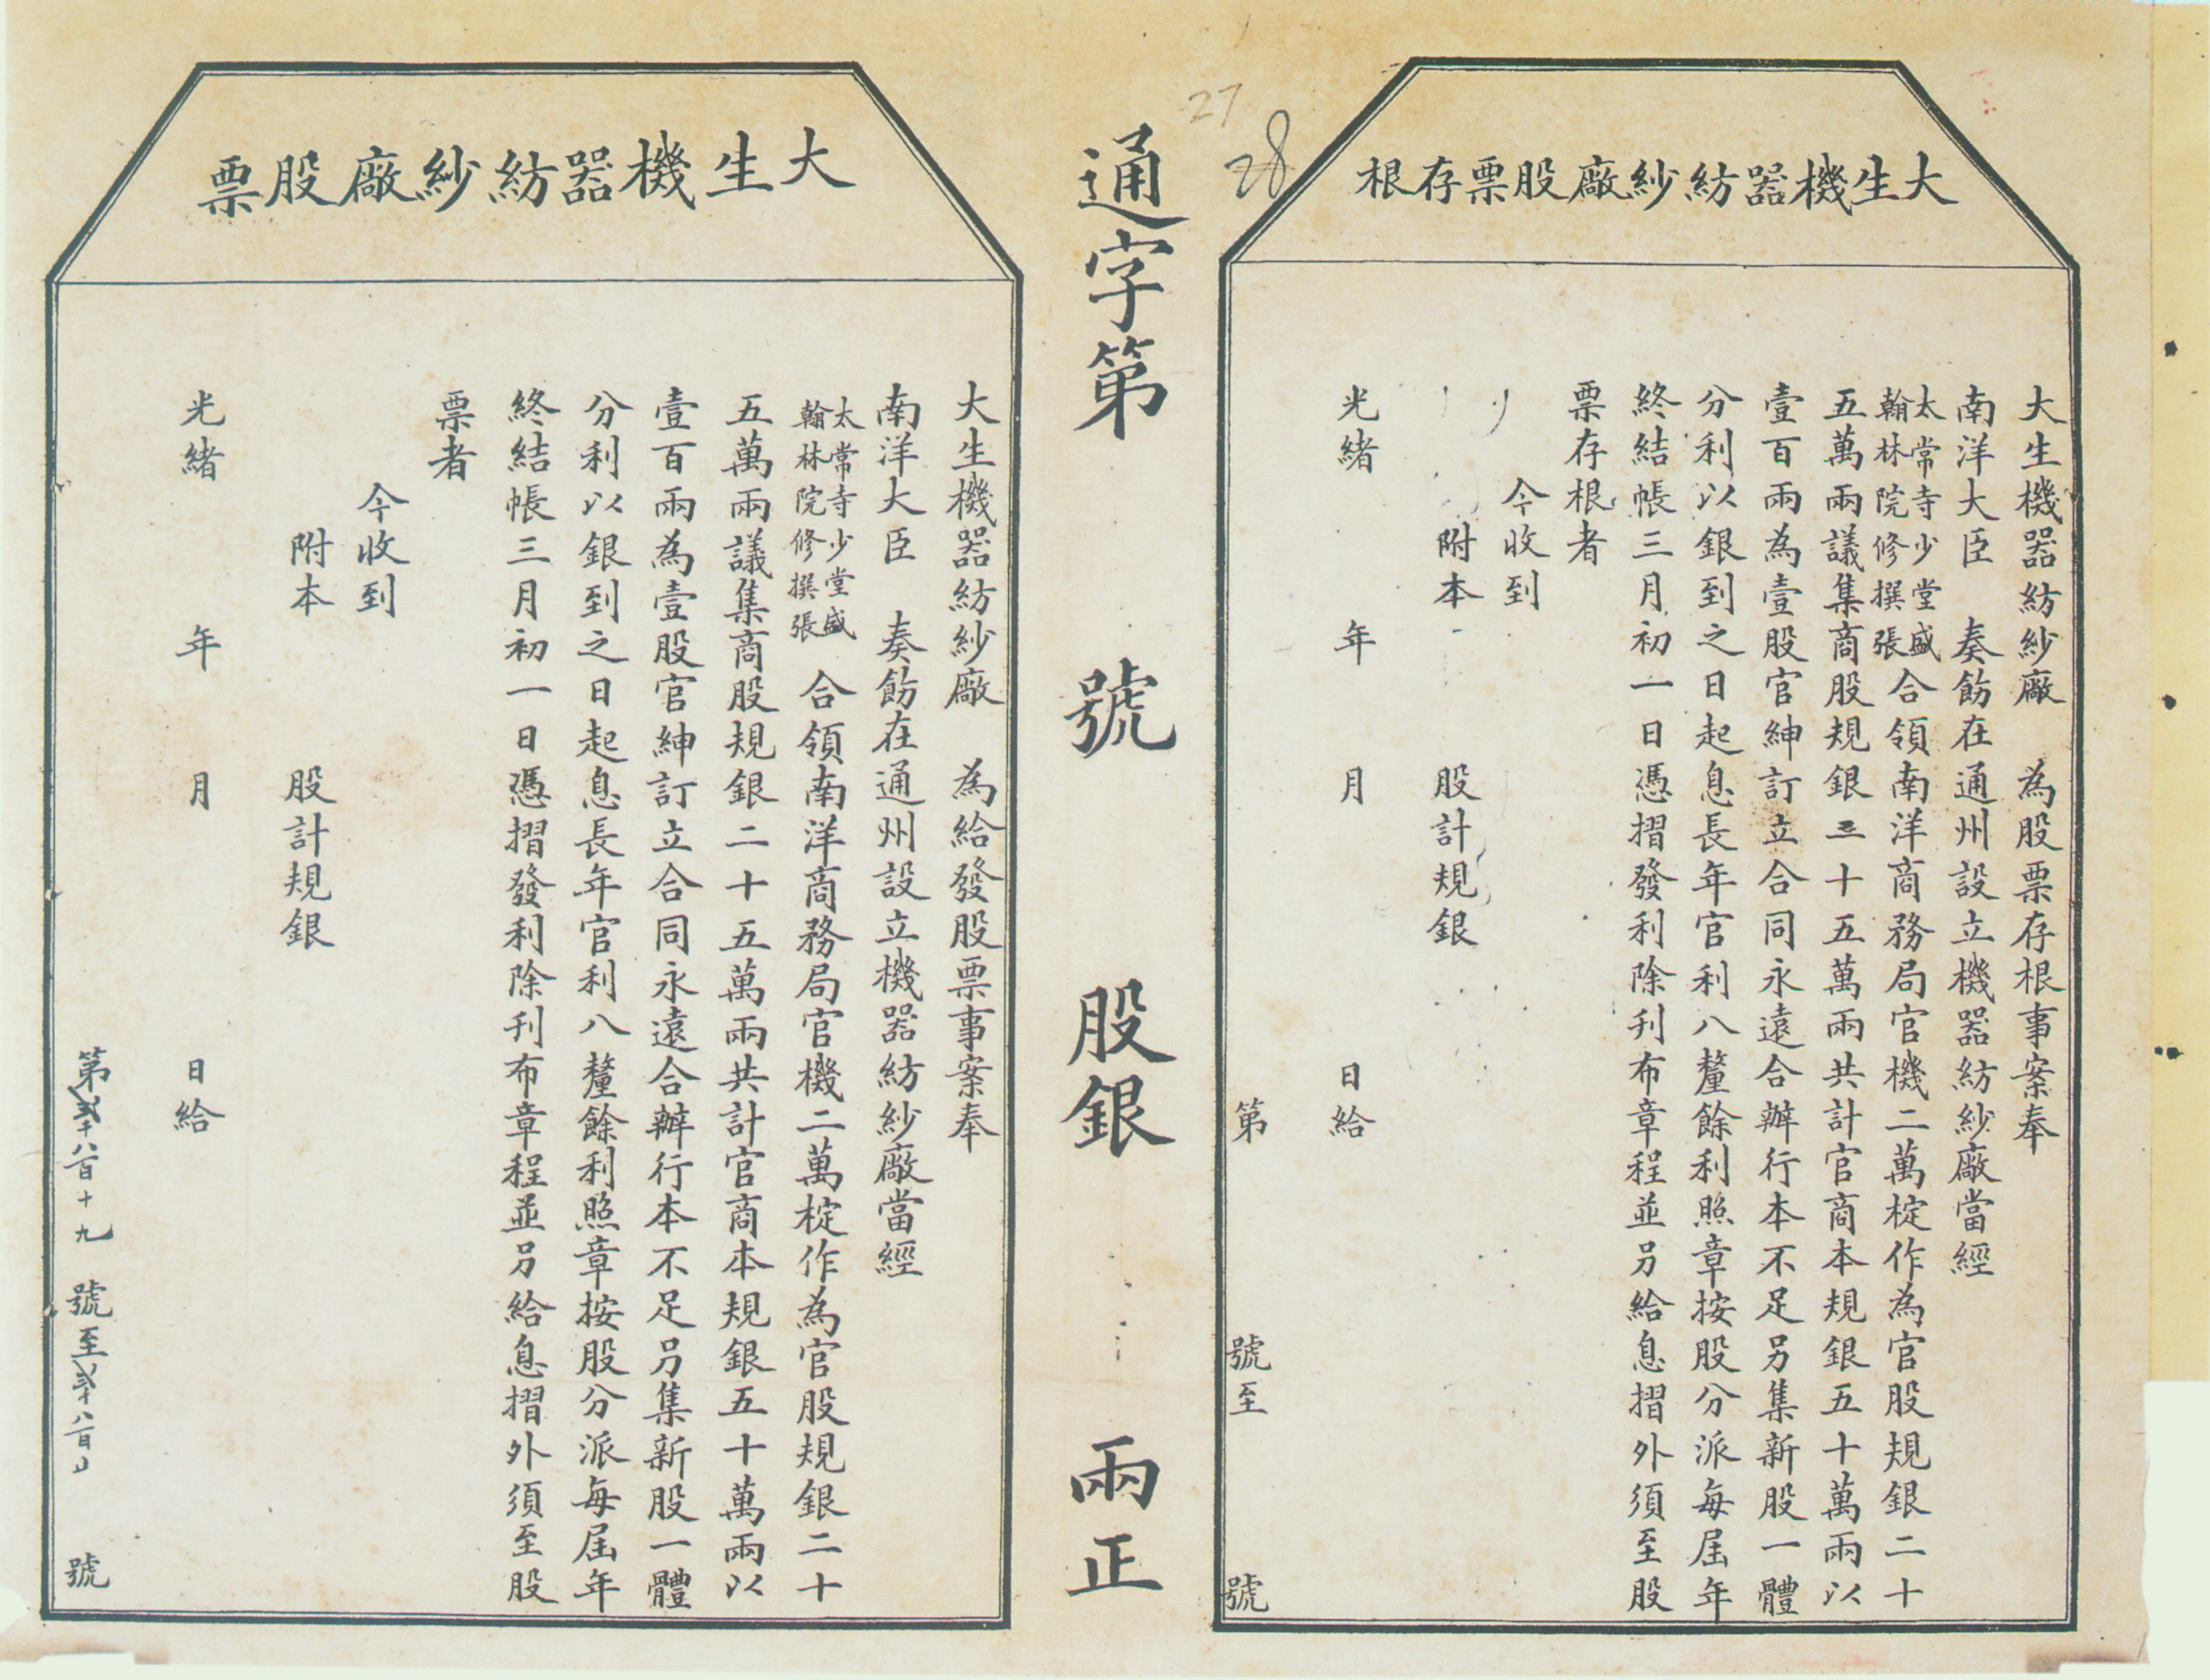 大生機器紡紗廠股票存根
大生機器紡紗廠 為股票存根事案奉
南洋大臣 奏飭在通州設立機器紡紗廠當經
太常寺少堂盛
翰林院修撰張
合領南洋商務局官機二萬椗作為官股規銀二十
五萬兩議集商股規銀二十五萬兩共計官商本規銀五十萬兩以
壹百兩為壹股官紳訂立合同永遠合辦行本不足另集新股一體
分利以銀到之日起息長年官利八釐餘利照章按股分派每屆年
終結帳三月初一日憑摺發利除刋布章程並另給息摺外須至股
票存根者
今收到
附本 股計規銀
光緒 年 月 日給
第 號至 號
28
27
通字第 號 股銀 兩正
大生機器紡紗廠股票
大生機器紡紗廠 為給發股票事案奉
南洋大臣 奏飭在通州設立機器紡紗廠當經
太常寺少堂盛
翰林院修撰張
合領南洋商務局官機二萬椗作為官股規銀二十
五萬兩議集商股規銀二十五萬兩共計官商本規銀五十萬兩以
壹百兩為壹股官紳訂立合同永遠合辦行本不足另集新股一體
分利以銀到之日起息長年官利八釐餘利照章按股分派每屆年
終結帳三月初一日憑摺發利除刋布章程並另給息摺外須至股
票者
今收到
附本 股計規銀
光緒 年 月 日給
第 八百十九 號至 八百 號